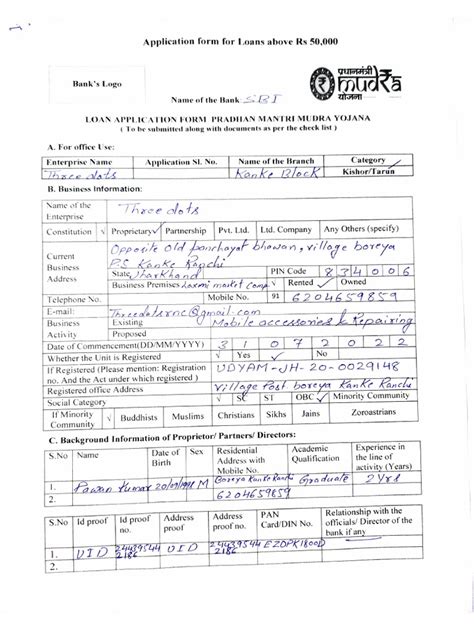 Application form for Loans above Rs 50,000
Bank's Logo
प्रधानमंत्री
mudra
योजना
Name of the Bank SBI
LOAN APPLICATION FORM PRADHAN MANTRI MUDRA YOJANA
( To be submitted along with documents as per the check list )
A. For office Use:
Enterprise Name Application Sl. No. Name of the Branch Category
Three dots Kanke Block Kishor/Tarun
B. Business Information:
Name of the Enterprise Three dots
Constitution √ Proprietary Partnership Pvt. Ltd. Ltd. Company Any Others (specify)
Current Business Address Opposite old panchayat bhawan, village boreya
P.S Kanke Ranchi
State Jharkhand PIN Code 834006
Business Premises Laxmi market Comp √ Rented ✓ Owned
Telephone No. Mobile No. 91 6204659859
E-mail: Threedotsrnc@gmail.com
Business Activity Existing Mobile accessories & Repairing
Proposed
Date of Commencement(DD/MM/YYYY) 31072022
Whether the Unit is Registered √ Yes ✓ No
If Registered (Please mention: Registration no. And the Act under which registered ) UDYAM-JH-20-0029148
Registered office Address Village Post boreya Kanke Ranchi
Social Category √ SC ST OBC ✓ Minority Community
If Minority Community √ Buddhists Muslims Christians Sikhs Jains Zoroastrians
C. Background Information of Proprietor/ Partners/ Directors:
S.No Name Date of Birth Sex Residential Address with Mobile No. Academic Qualification Experience in the line of activity (Years)
1. Pawan Kumar M Boreya Kanke Ranchi Graduate 2 Yrs
2. 6204659859
S.No Id proof Id proof no. Address proof Address proof no. PAN Card/DIN No. Relationship with the officials/ Director of the bank if any
1. UID 24439544 2186 UID 24439544 2186 EZDPK1800D
2.